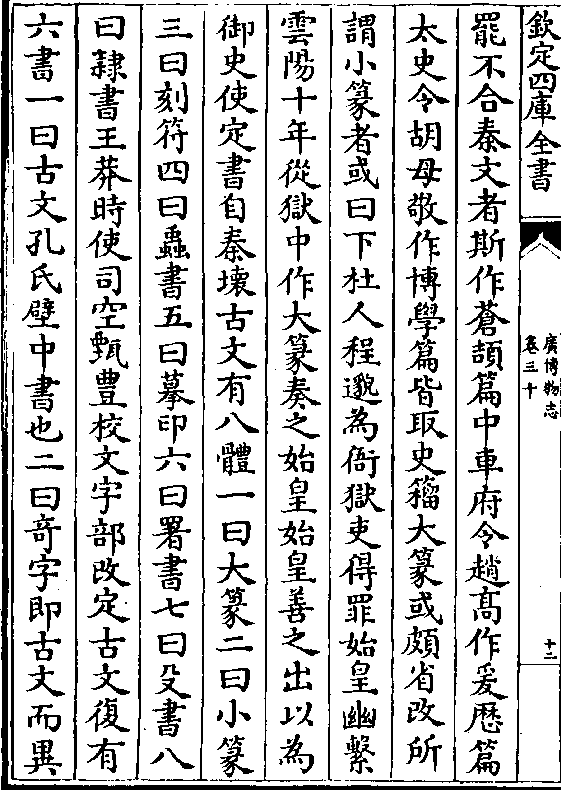 欽定四庫全書
廣博物志
卷三十
十二
罷不合秦文者斯作蒼頡篇中車府令趙髙作爰厯篇
太史令胡母敬作博學篇皆取史籕大篆或頗省改所
謂小篆者或曰下杜人程邈為衙獄吏得罪始皇幽繫
雲陽十年從獄中作大篆奏之始皇始皇善之出以為
御史使定書自秦壊古文有八體一曰大篆二曰小篆
三曰刻符四曰蟲書五曰摹印六曰署書七曰殳書八
曰隸書王莽時使司空甄豊校文字部改定古文復有
六書一曰古文孔氏壁中書也二曰竒字即古文而異